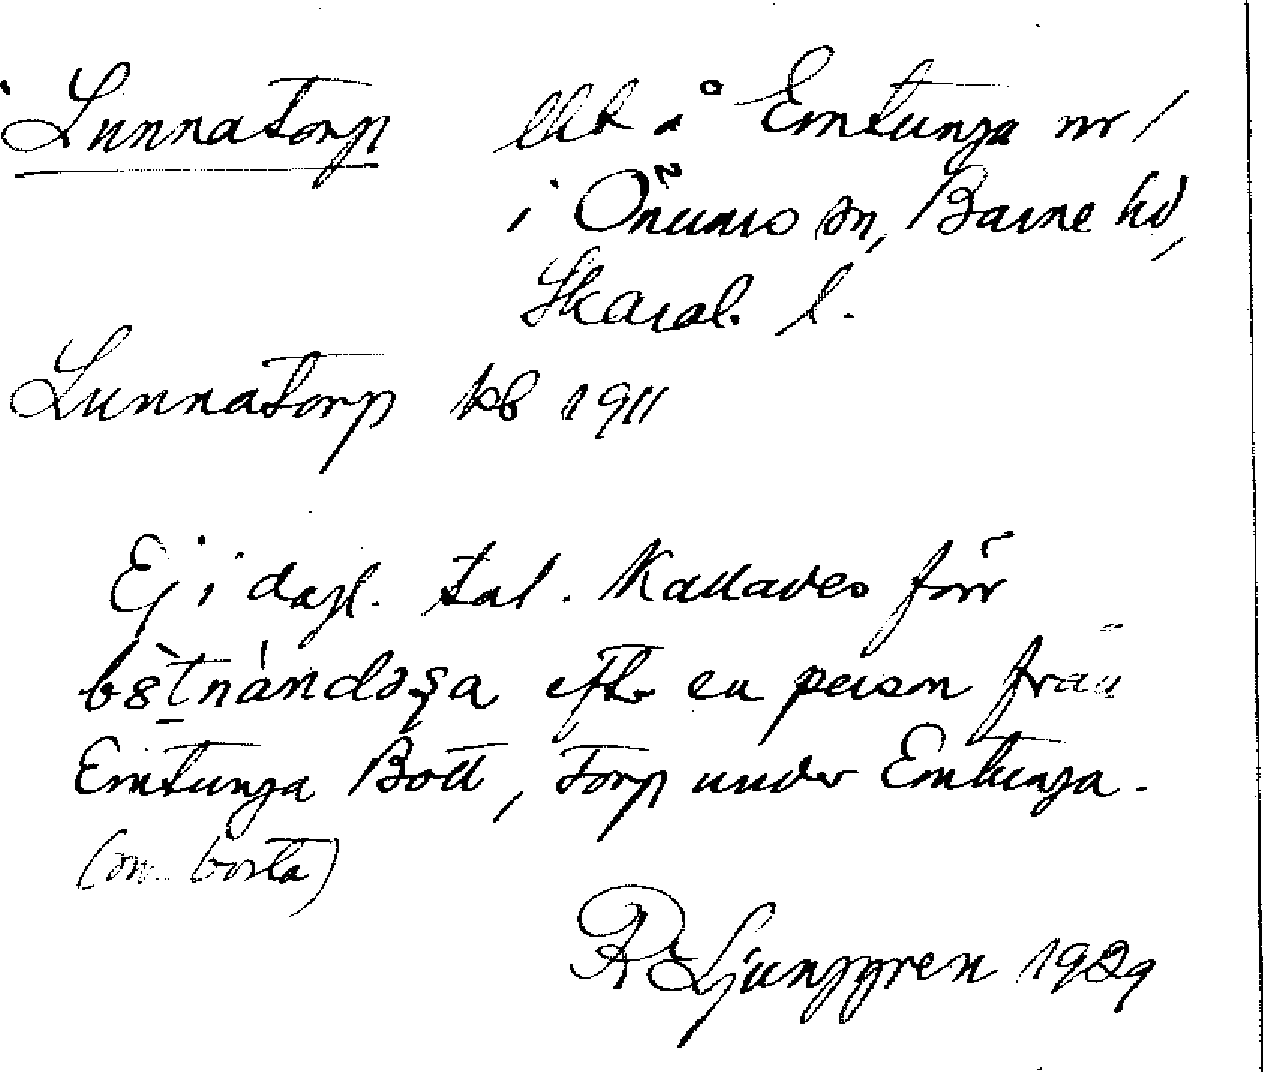 Lunnatorp lht å Emtunga nr 1
i Önums sn, Barne hd,
Skarab. l.
Lunnatorp kb 1911
Ej i dagl. tal. Kallades förr
efter en person från
Emtunga Bott, torp under Emtunga.
(nu borta)
R Ljunggren 1929